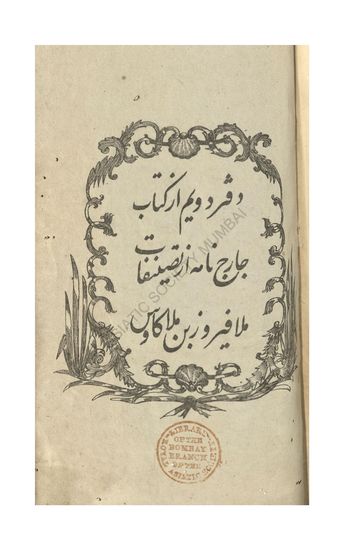 دفتر دویم از کتاب
جارج نامه از تصنیفات
ملا فیروز بن ملا کاوس
ASIATIC SOCIETY MUMBAI
LIBRARY
OF THE
BOMBAY
BRANCH
OF THE
ROYAL ASIATIC